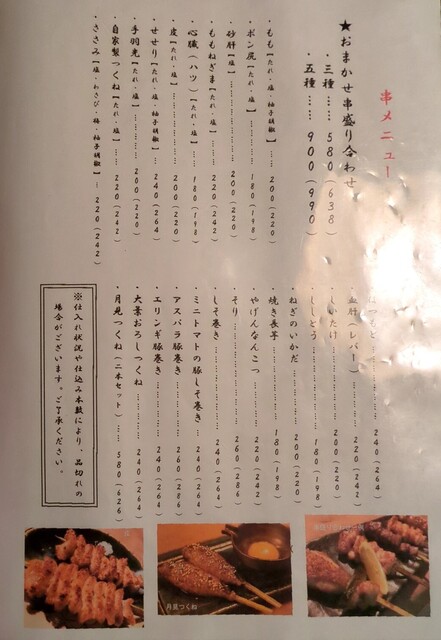 串メニュー
★おまかせ串盛り合わせ
・三種……580(638)
・五種……900(990)
・もも【たれ・塩・柚子胡椒】……200(220)
・ボン尻【たれ・塩】……180(198)
・砂肝【塩】……200(220)
・ももねぎま【たれ・塩】……220(242)
・心臓(ハツ)【たれ・塩】……180(198)
・皮【たれ・塩】……200(220)
・せせり【たれ・塩・柚子胡椒】……240(264)
・手羽先【たれ・塩】……200(220)
・自家製つくね【たれ・塩】……220(242)
・ささみ【塩・わさび・梅・柚子胡椒】…220(242)
240(264)
・血肝(レバー)……200(220)
・しいたけ……200(220)
・ししとう……180(198)
・ねぎのいかだ……200(220)
・焼き長芋……180(198)
・やげんなんこつ……220(242)
・そり……260(286)
・しそ巻き……240(264)
・ミニトマトの豚しそ巻き…240(264)
・アスパラ豚巻き……260(286)
・エリンギ豚巻き……240(264)
・大葉おろしつくね……240(264)
・月見つくね(二本セット)……580(626)
※仕入れ状況や仕込み本数により、品切れの
場合がございます。ご了承ください。
月見つくね